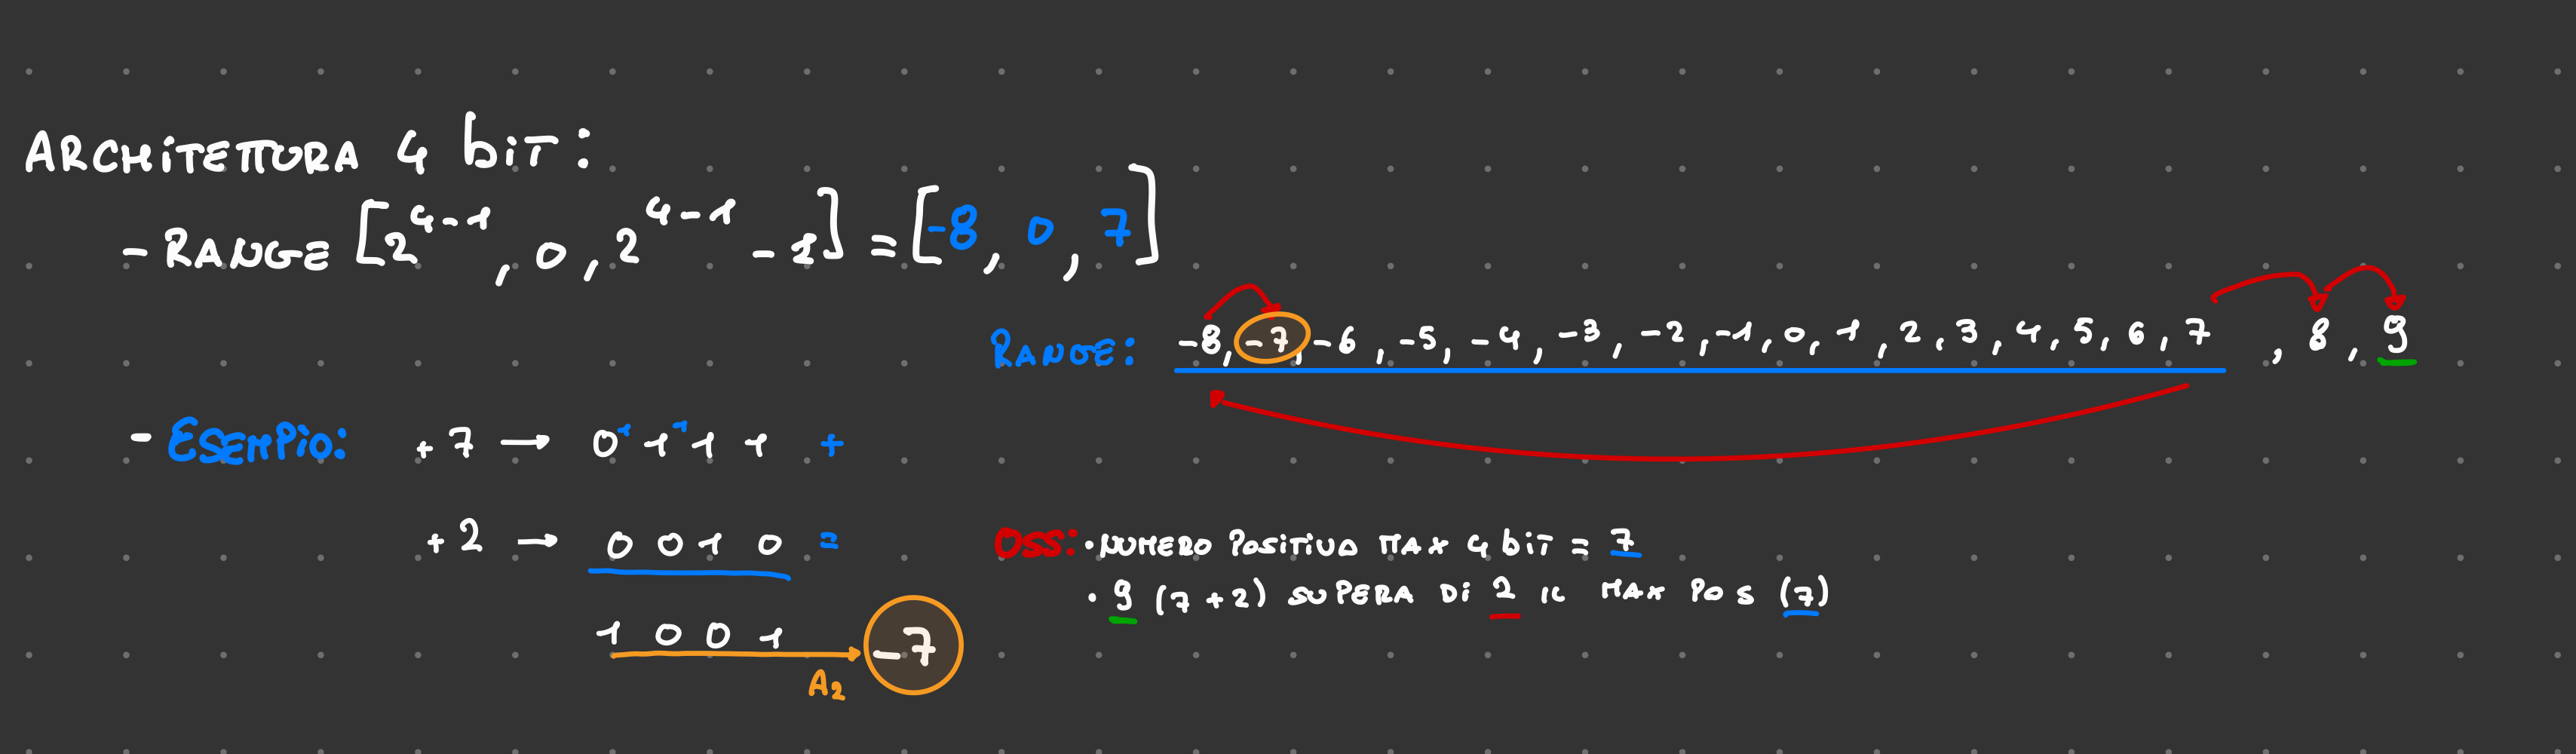 ARCHITETTURA 4 bit:
- RANGE [2^4-1, 0, 2^4-1 - 1] = [-8, 0, 7]
RANGE: -8, -7, -6, -5, -4, -3, -2, -1, 0, 1, 2, 3, 4, 5, 6, 7, 8, 9
- ESEMPIO: +7 → 0 1 1 1 1 1 +
+2 → 0 0 1 0 =
1 0 0 1 → -7
A2
OSS: • NUMERO POSITIVO MAX 4 bit = 7
• 9 (7+2) SUPERA DI 2 IL MAX POS (7)